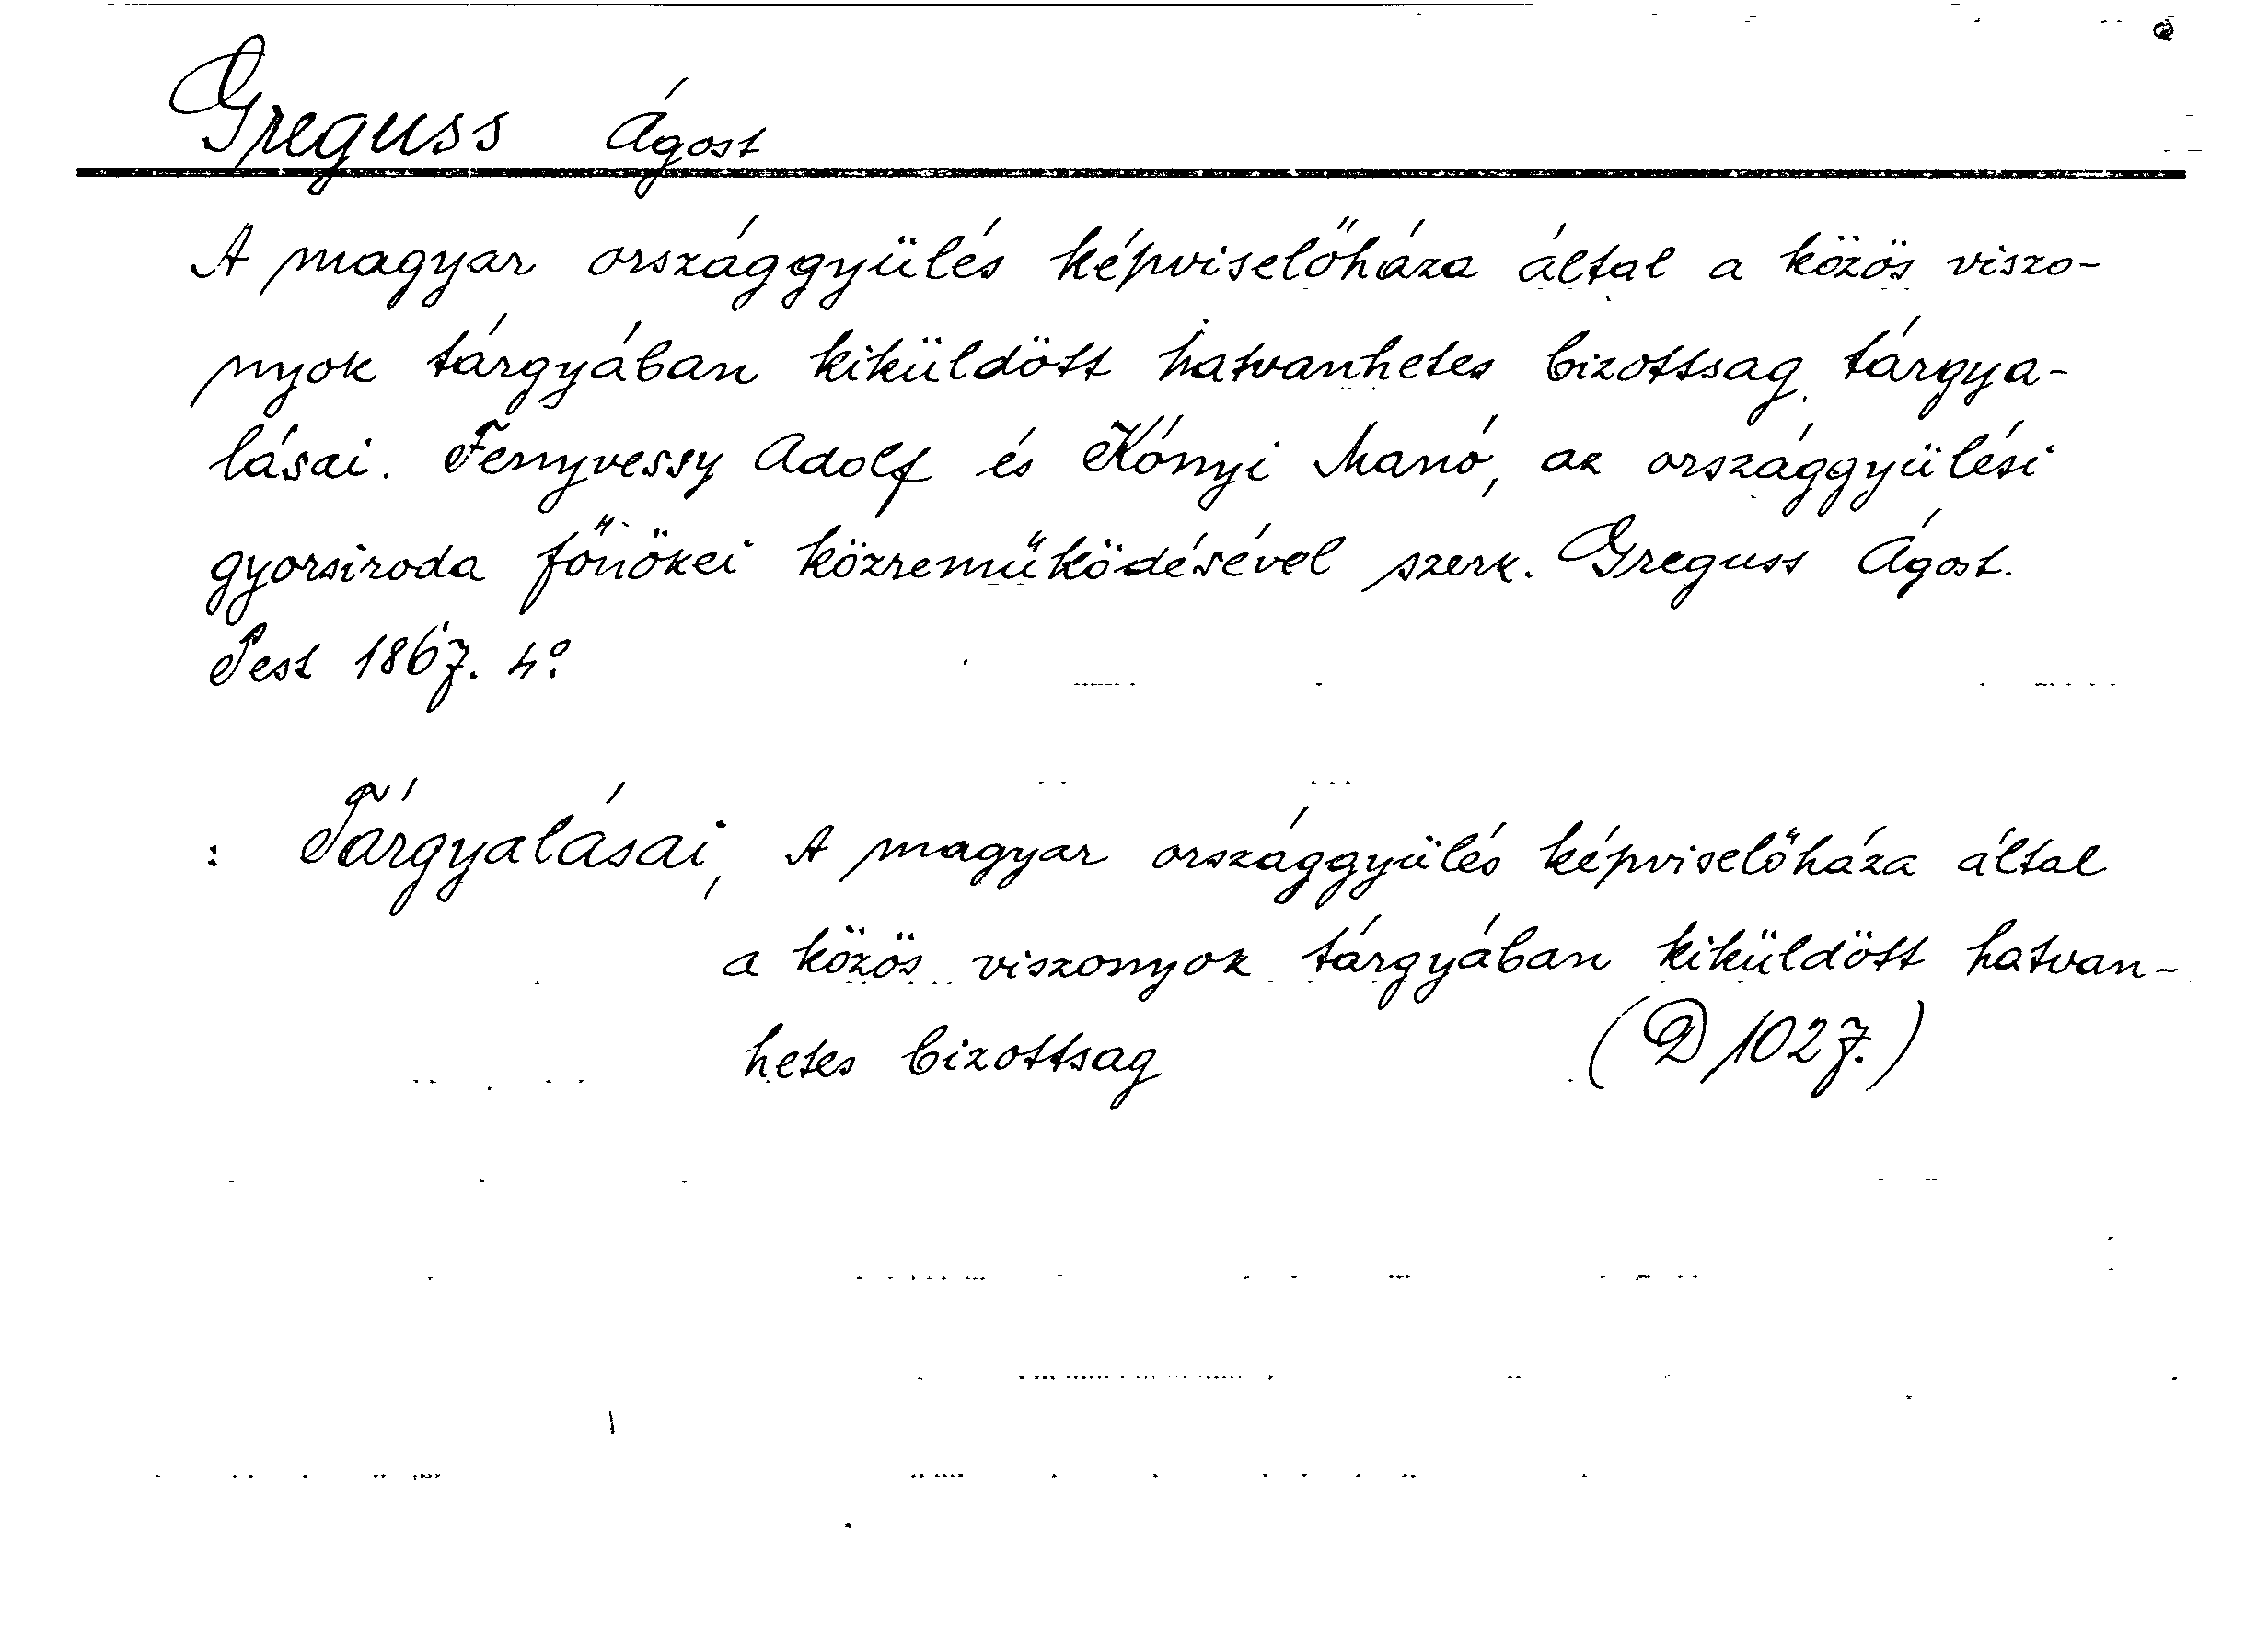 Greguss Ágost
A magyar országgyülés képviselőháza által a közös viszo-
nyok tárgyában kiküldött hatvanhetes bizottsag tárgya-
lásai. Fenyvessy Adolf és Kónyi Manó, az országgyülési
gyorsiroda főnökei közreműködésével szerk. Greguss Ágost.
Pest 1867. 4º.
: Tárgyalásai, A magyar országgyülés képviselőháza által
a közös viszonyok tárgyában kiküldött hatvan-
hetes bizottsag (D 1027.)